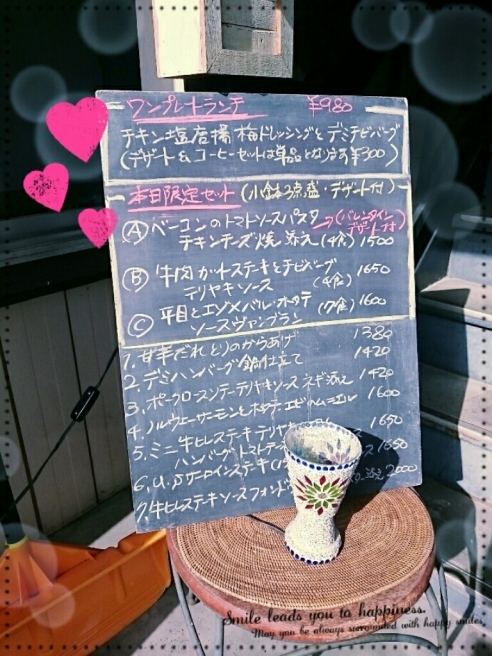 ワンプレートランチ ¥980
チキン塩唐揚 梅ドレッシングとデミチビバーグ
(デザート&コーヒーセットは単品となります¥300)
本日限定セット (小鉢3点盛・デザート付)
Ⓐ ベーコンのトマトソースパスタ →(バレンタインデザート付)
チキンチーズ焼 添え (4食) 1500
Ⓑ 牛肉カットステーキとチビバーグ 1650
テリヤキソース (4食)
Ⓒ 平目とエゾメバル・ホタテ 1600
ソースヴァンブラン (7食)
1. 甘辛だれとりのからあげ 1380
2. デミハンバーグ 鍋仕立て 1420
3. ポークロースソテーテリヤキソース ネギ添え 1420
4. ノルウェーサーモンとホタテ エビのムニエル 1600
5. ミニ牛ヒレステーキ テリヤキ 1650
ハンバーグ トマトデ ス 1650
6. U.Sサーロインステーキ
7. 牛ヒレステーキ ソースフォンド 添え 2000
Smile leads you to happiness.
May you be always surrounded with happy smiles.